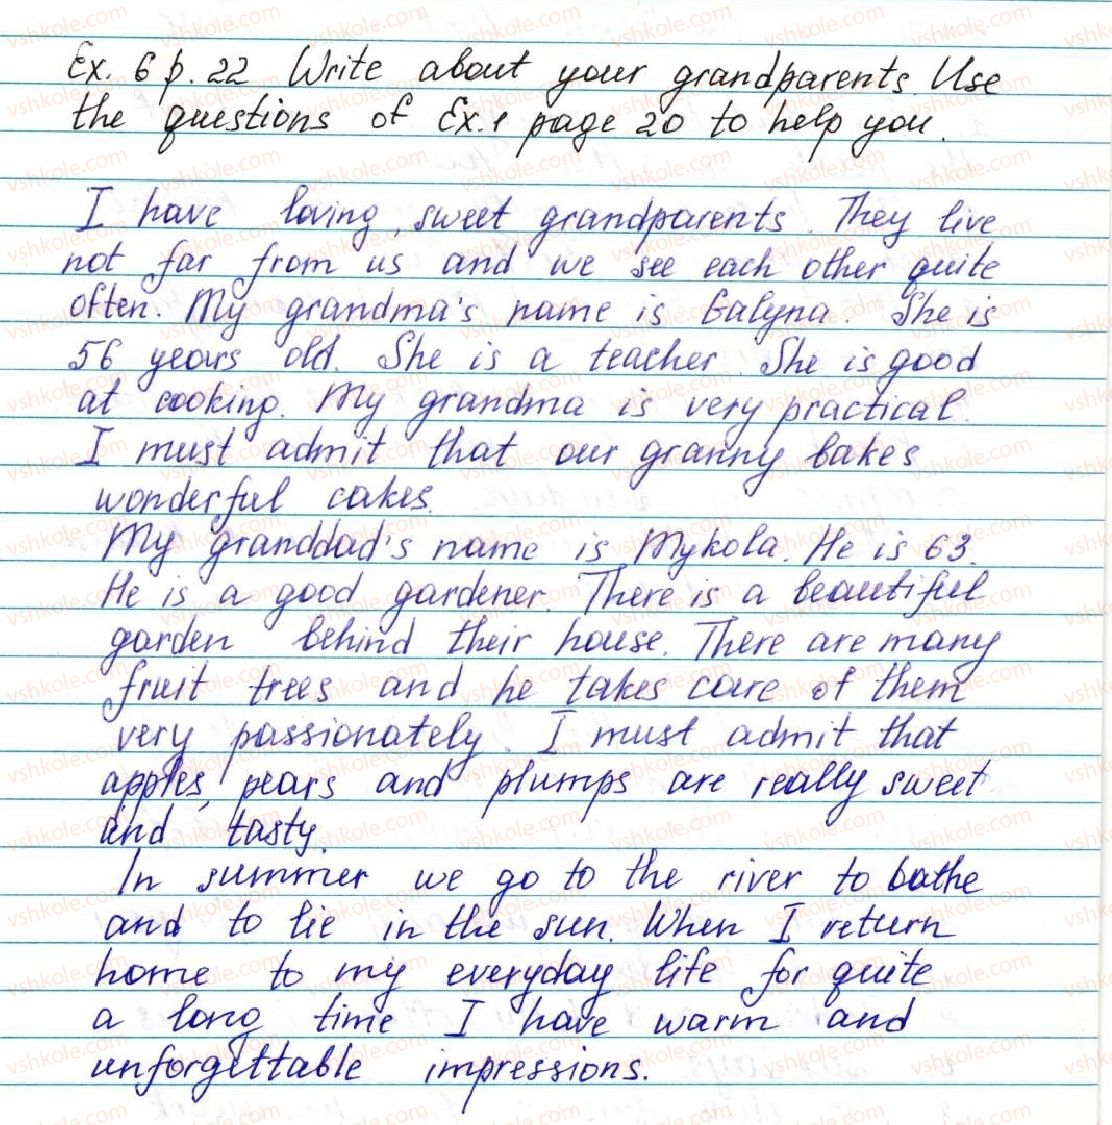 Ex. 6 p. 22 Write about your grandparents. Use
the questions of Ex. 1 page 20 to help you.
I have loving, sweet grandparents. They live
not far from us and we see each other quite
often. My grandma's name is Galyna. She is
56 years old. She is a teacher. She is good
at cooking. My grandma is very practical.
I must admit that our granny bakes
wonderful cakes.
My granddad's name is Mykola. He is 63.
He is a good gardener. There is a beautiful
garden behind their house. There are many
fruit trees and he takes care of them
very passionately. I must admit that
apples, pears and plumps are really sweet
and tasty.
In summer we go to the river to bathe
and to lie in the sun. When I return
home to my everyday life for quite
a long time I have warm and
unforgettable impressions.
vshkole.com